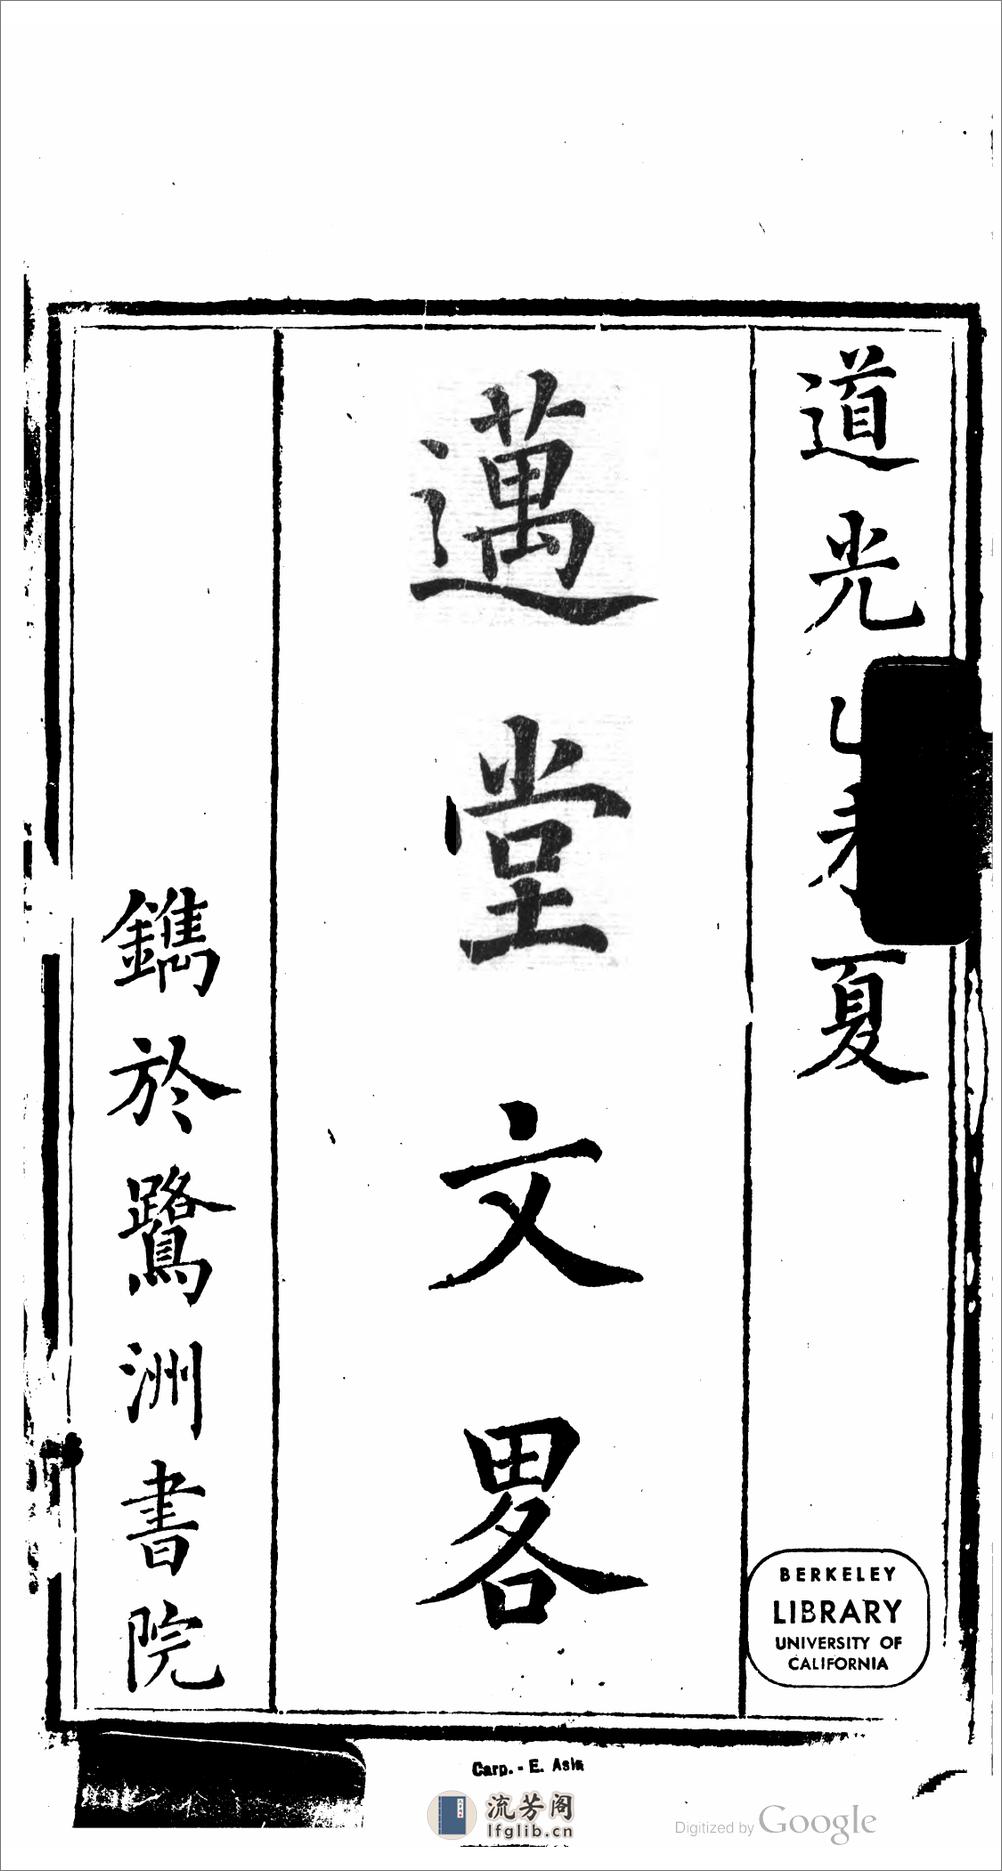 道光
夏
邁堂文畧
鐫於鷺洲書院
BERKELEY
LIBRARY
UNIVERSITY OF
CALIFORNIA
Carp. - E. Asia
流芳阁
lfglib.cn
Digitized by Google